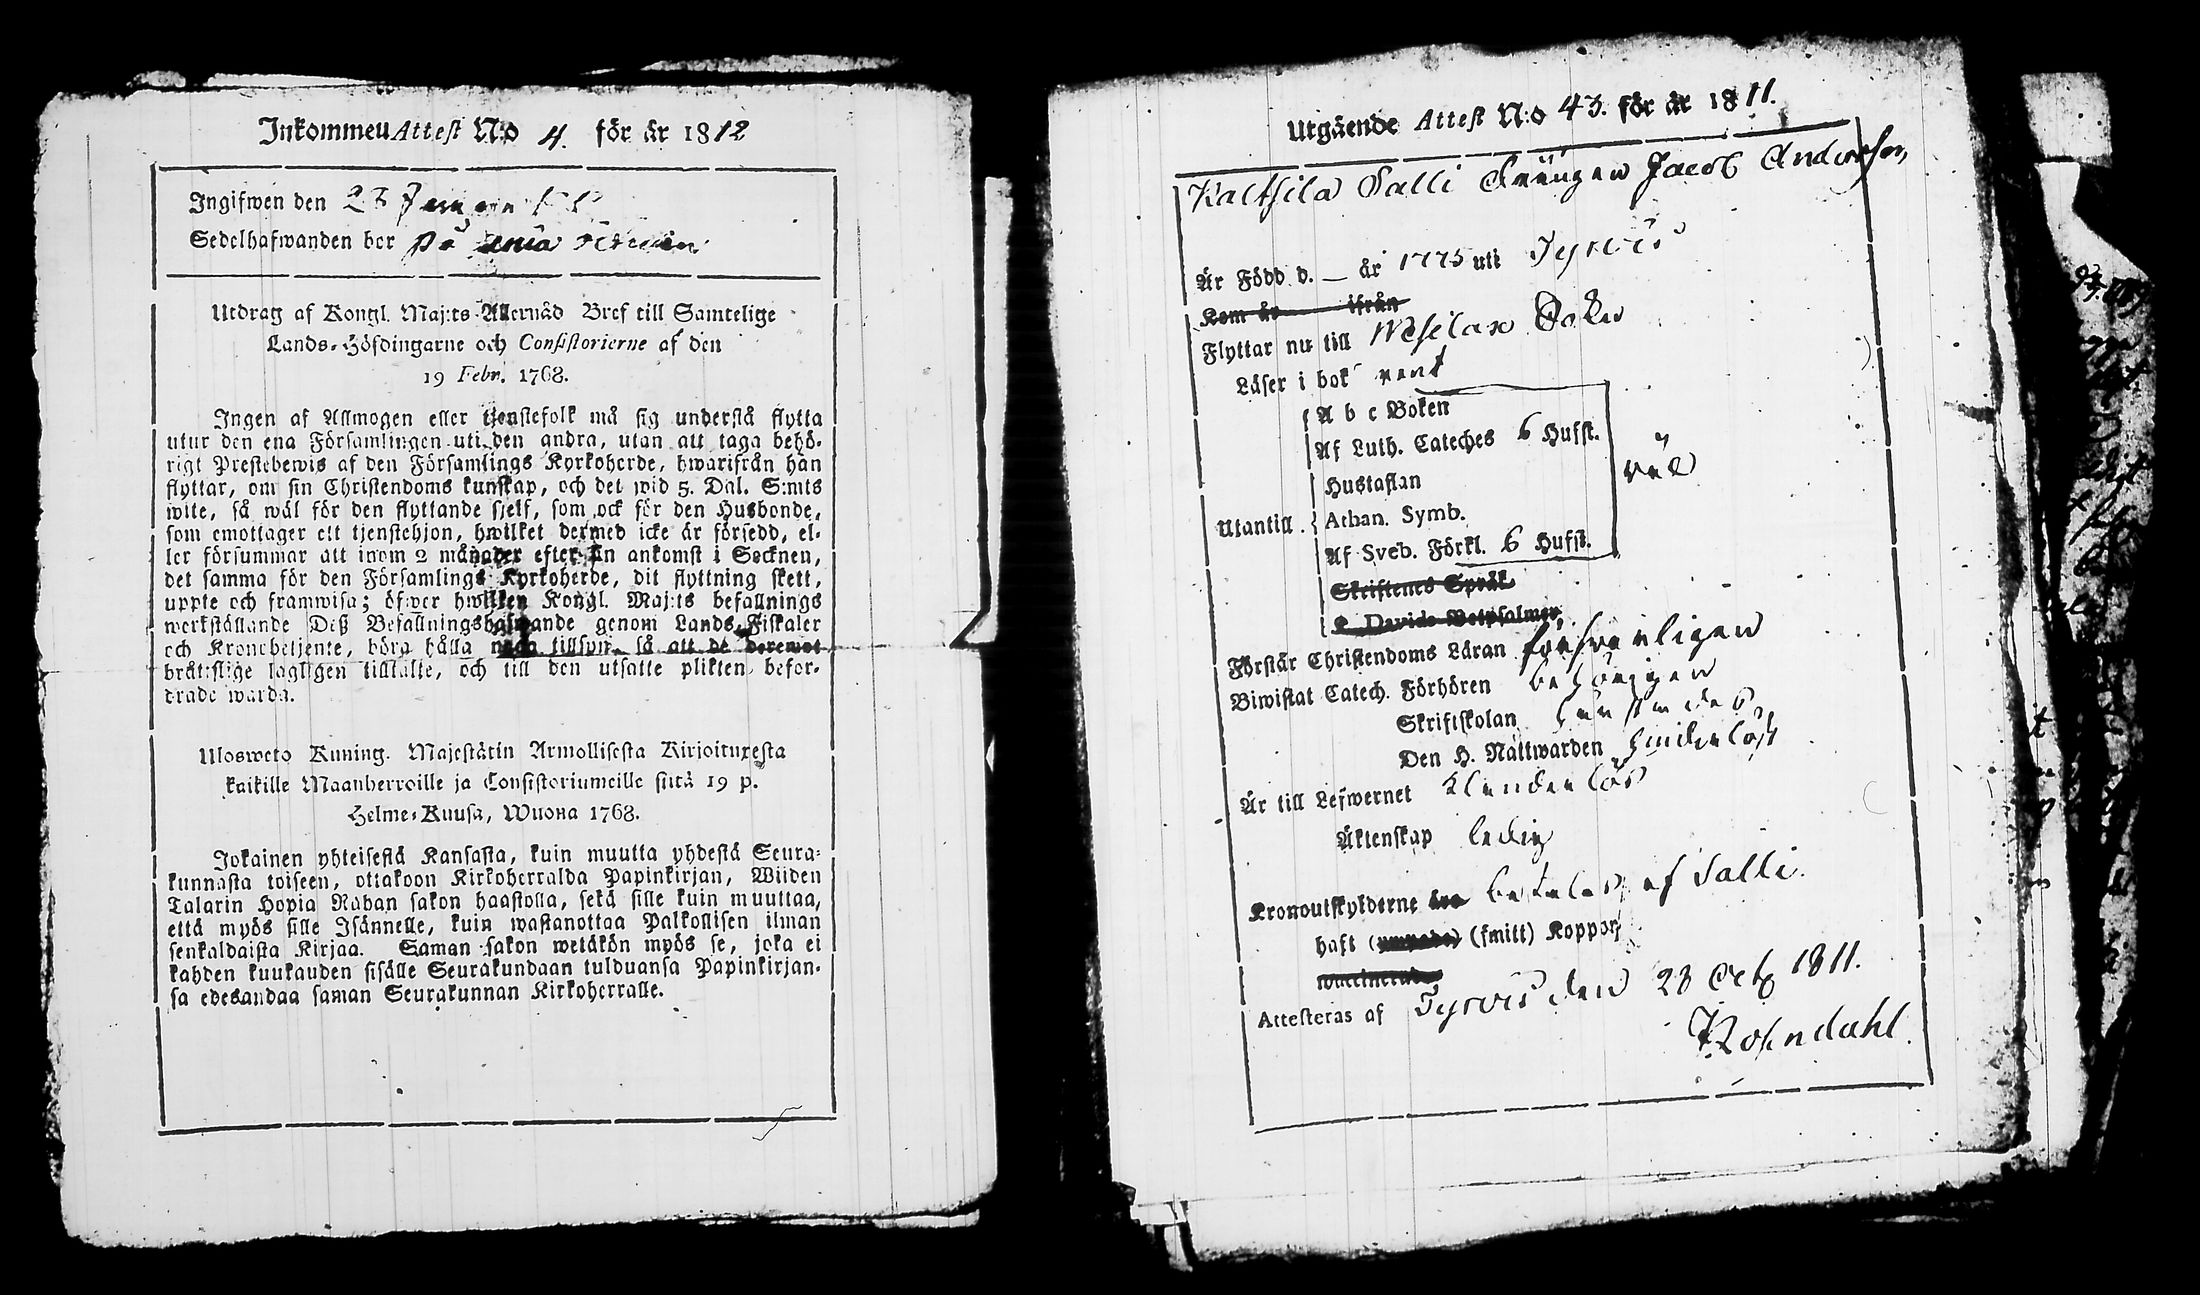 Inkommen Attest N:o 4. för år 1812
Ingifwen den 23
Sedelhafwanden bor på
Utdrag af Kongl. Maj:ts Allernåd Bref till Samtelige
Lands-Höfdingarne och Consistorierne af den
19 Febr. 1768.
Ingen af Allmogen eller tjenstefolk må sig understå flytta
utur den ena Församlingen uti den andra, utan att taga behö-
rigt Prestebewis af den Församlings Kyrkoherde, hwarifrån han
flyttar, om sin Christendoms kunskap, och det wid 5. Dal. S:mts
wite, så wäl för den flyttande sjelf, som ock för den Husbonde,
som emottager ett tjenstehjon, hwilket dermed icke är försedd, el-
ler försummar att inom 2 månader efter sin ankomst i Socknen,
det samma för den Församlings Kyrkoherde, dit flyttning skett,
uppte och framwisa; öfwer hwilken Kongl. Maj:ts befallnings
werkställande Deß Befallningshafwande genom Lands-Fiskaler
och Kronobetjente, böra hålla noga tillsyn, så att de deremot
bråttslige lagligen tilltalte, och till den utsatte plikten befor-
drade warda.
Ulosweto Kuning. Majestätin Armollisesta Kirjoituxesta
kaikille Maanherroille ja Consistoriumeille siitä 19 p.
Helme-Kuusa, Wuona 1768.
Jokainen yhteisestä Kansasta, kuin muutta yhdestä Seura-
kunnasta toiseen, ottakoon Kirkoherralda Papinkirjan, Wiiden
Talarin Hopia Rahan sakon haastolla, sekä sille kuin muuttaa,
että myös sille Isännelle, kuin wastanottaa Palkollisen ilman
senkaldaista Kirjaa. Saman sakon wetäkön myös se, joka ei
kahden kuukauden sisälle Seurakundaan tulduansa Papinkirjan-
sa edesandaa saman Seurakunnan Kirkoherralle.
Utgående Attest N:o 43. för år 1811.
Kaltsila Salli Drängen Jacob Andersson,
Är Född d. — år 1775 uti Tyrvis
Kom år ifrån
Flyttar nu till Wesilax Sokn
Läser i bok rent
A b c Boken
Af Luth. Cateches 6 Hufst.
Hustaflan
väl
Utantill
Athan. Symb.
Af Sveb. Förkl. 6 Hufst.
Skriftenes Språk
Davids Botpsalmer,
Förstår Christendoms Läran försvarligen
Biwistat Catech. Förhören behörigen
Skriftskolan
Den H. Nattwarden
Är till Lefwernet Klanderlös
Äktenskap ledig
Kronoutskylderne äro betalas af Salli.
haft (ympade) (smitt) Koppor,
Attesteras af Tyrvis den 23 Octb 1811.
Rosendahl.